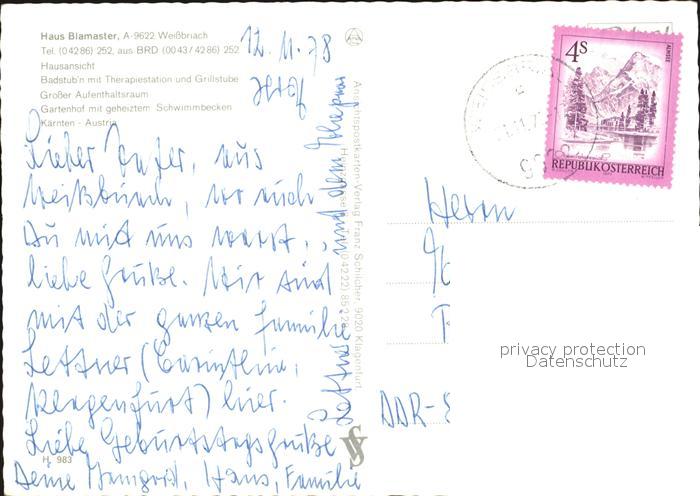 Haus Blamaster, A-9622 Weißbriach
Tel. (0 42 86) 252, aus BRD (00 43 / 42 86) 252
Hausansicht
Badstub'n mit Therapiestation und Grillstube
Großer Aufenthaltsraum
Gartenhof mit geheiztem Schwimmbecken
Kärnten - Austria
12. 11. 78
Lieber, aus
Weißbriach, wo auch
Du mit uns warst,
liebe Grüße. Wir sind
mit der ganzen Familie
Lettner (Carinthia,
Klagenfurt) hier.
Liebe Geburtstagsgrüße
Deine Irmgard, Hans, Familie
Lettner und dem
H 983
Ansichtspostkarten-Verlag Franz Schilcher, 9020 Klagenfurt
4 S
ALMSEE
REPUBLIK ÖSTERREICH
Herrn
DDR-
privacy protection
Datenschutz